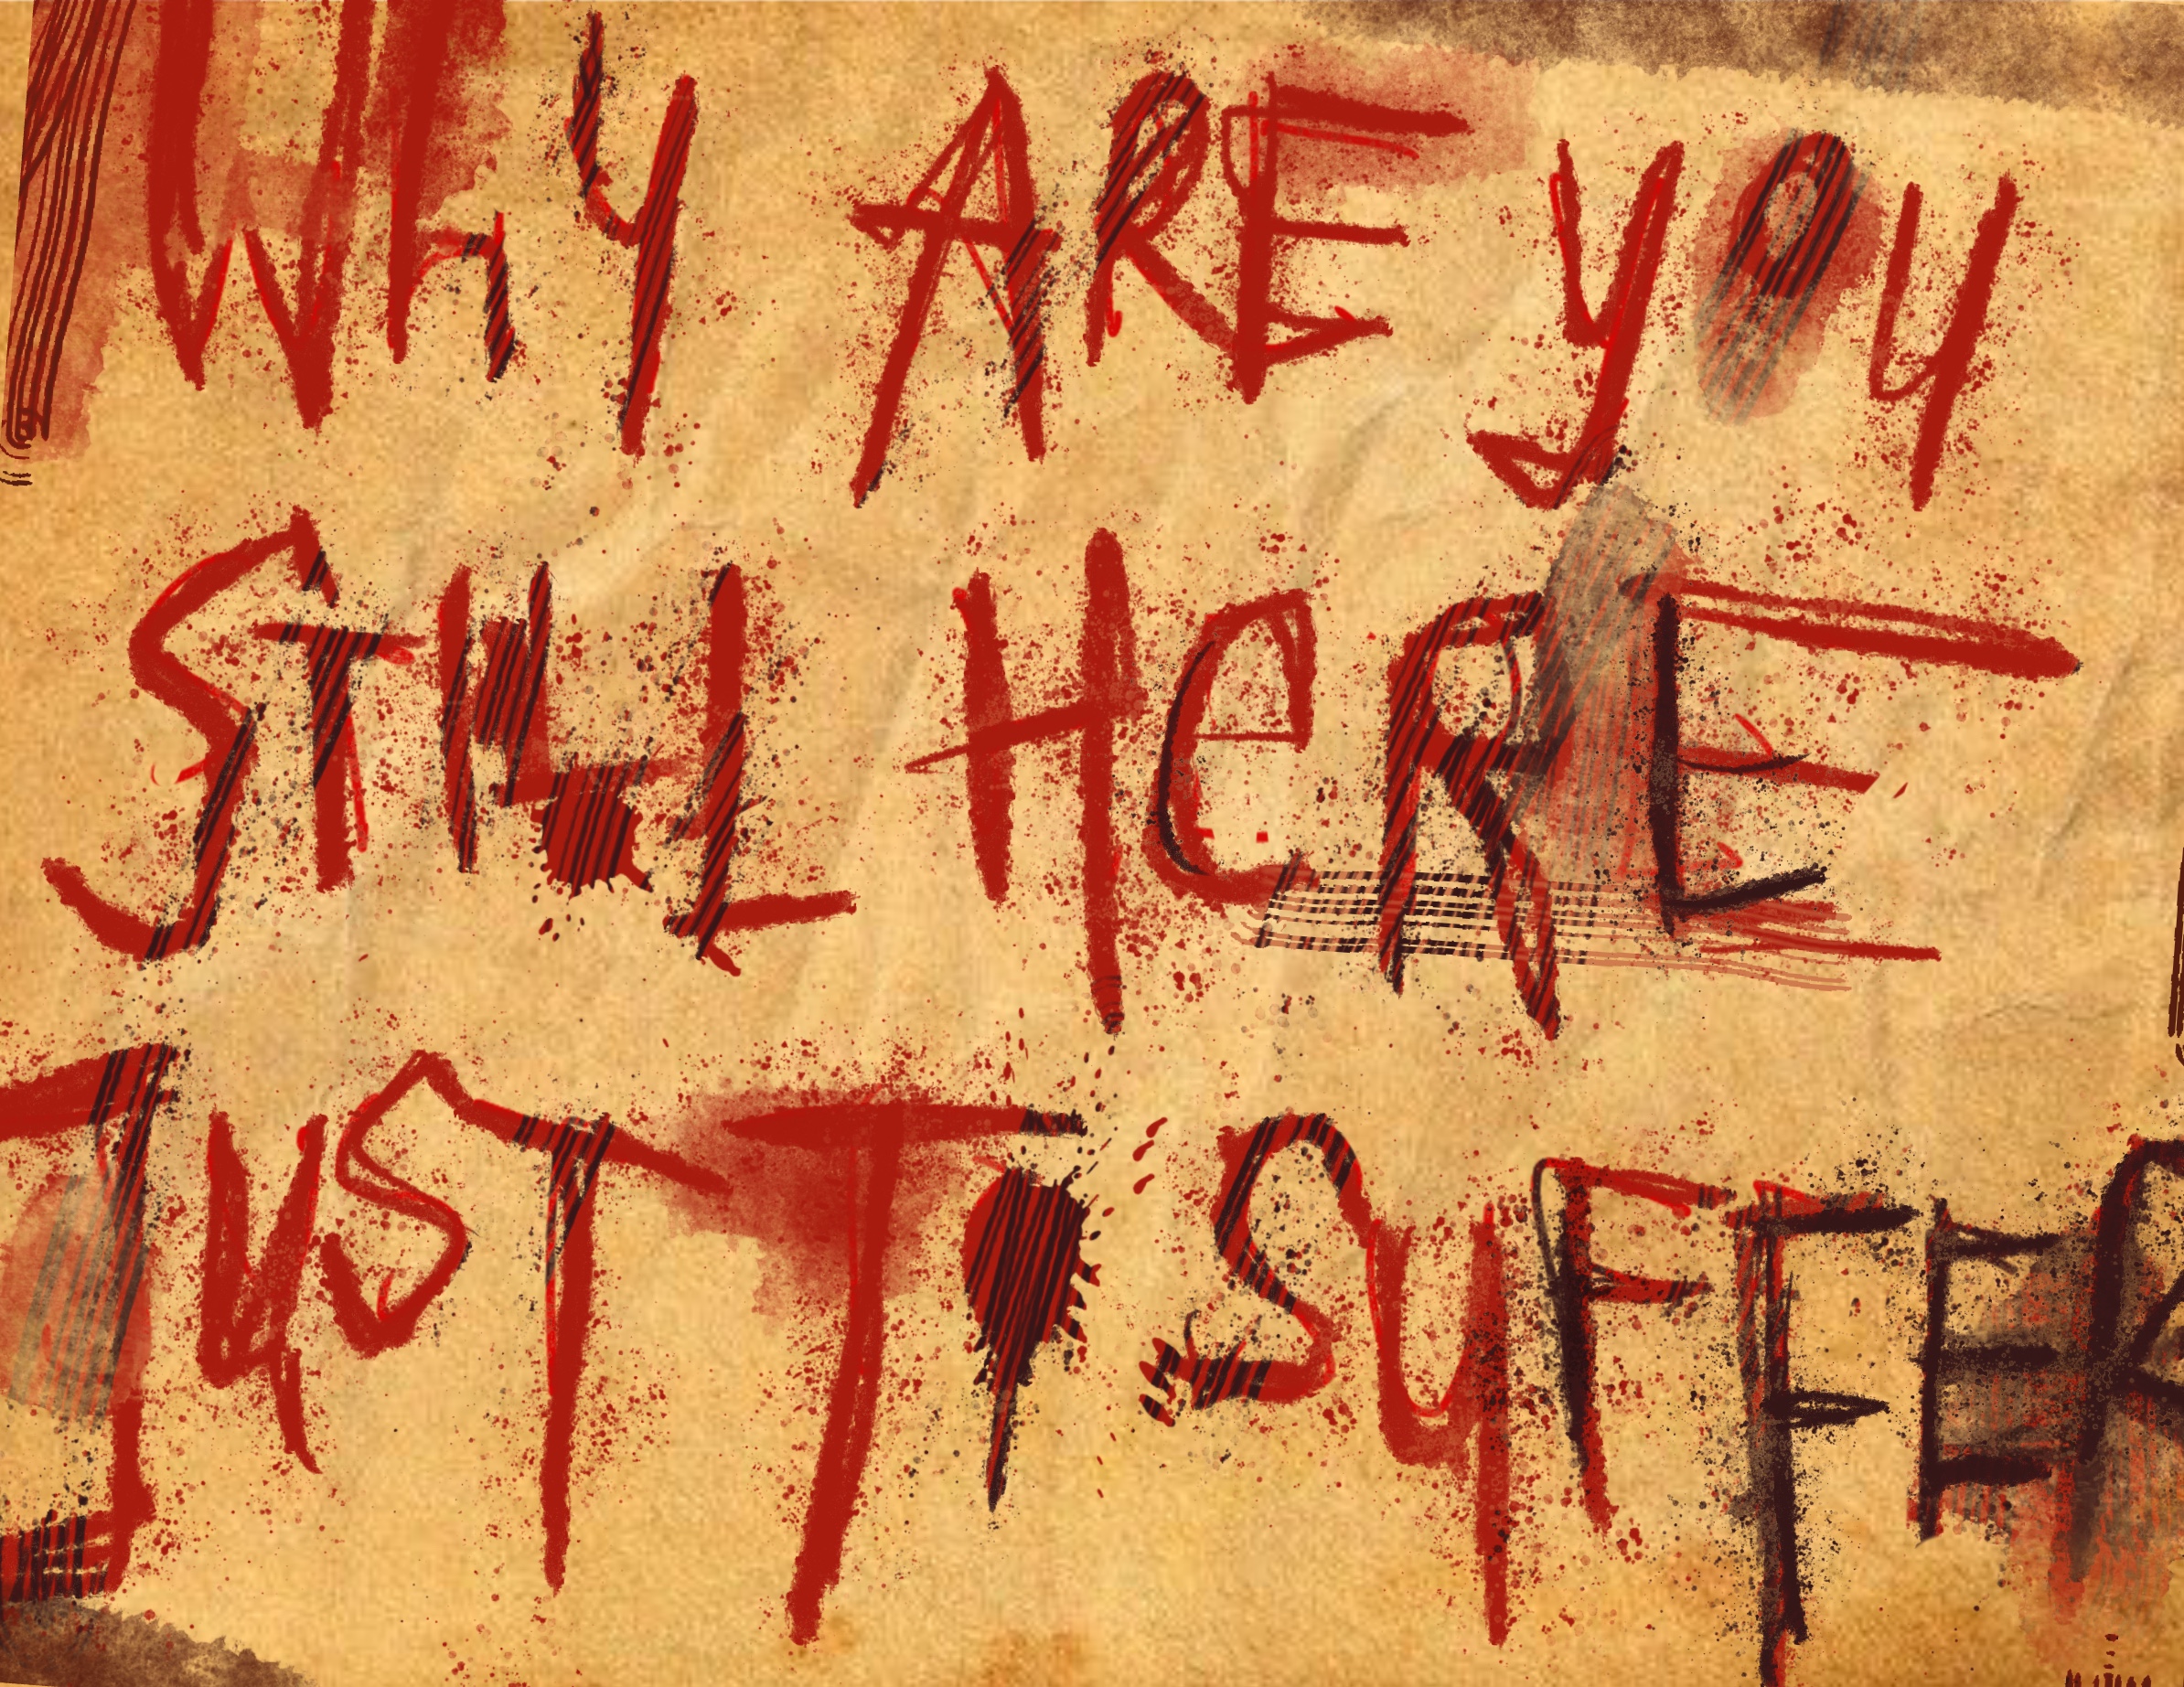 WhY ARE YOU
STILL HeRE
JUST TO SUFFER